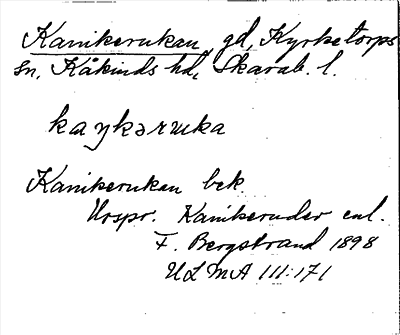 Kanikerukan gd, Kyrketorps
sn, Kåkinds hd, Skarab. l.
kaŋkəruka
Kanikerukan bek.
Urspr. Kanikeruder enl.
F. Bergstrand 1898
ULMA 111:171